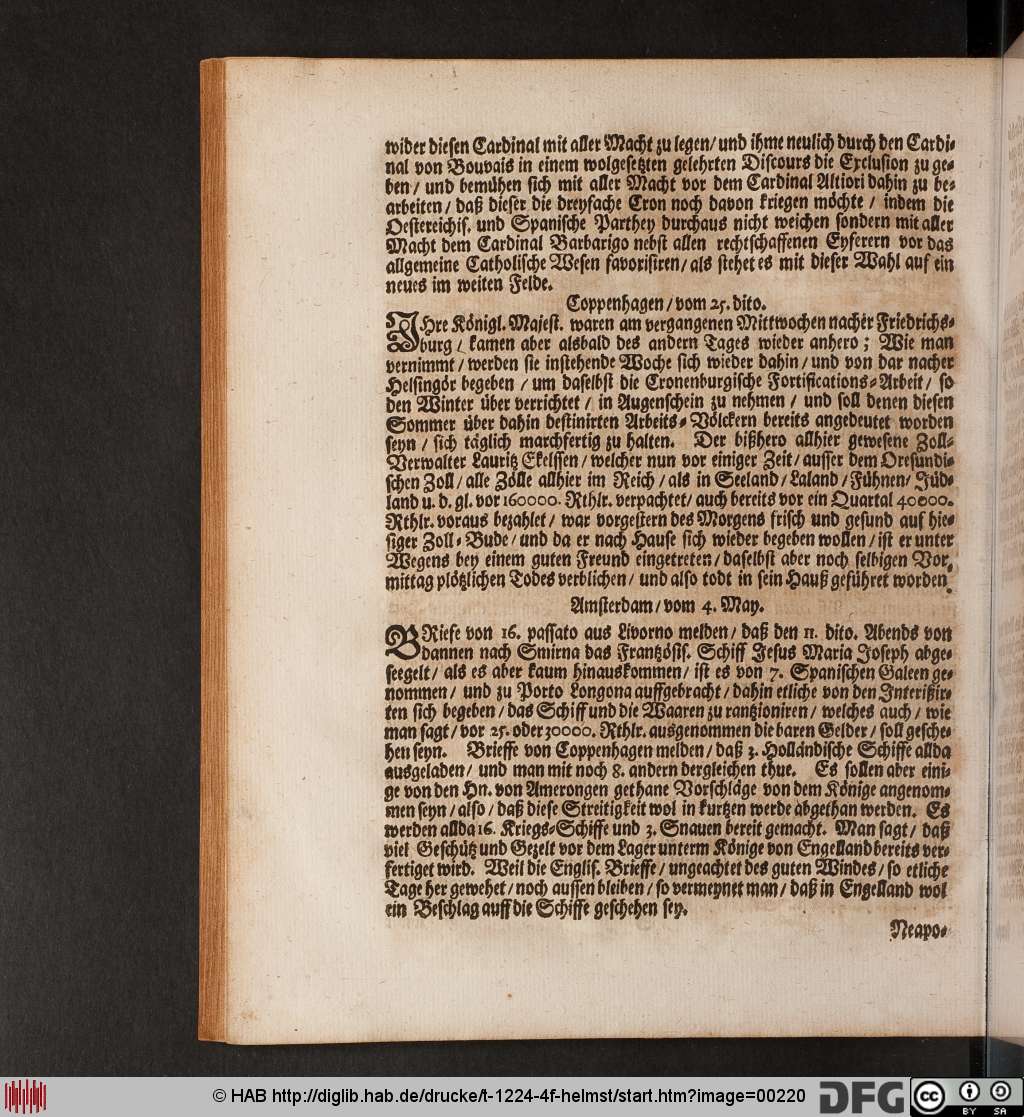 wider diesen Cardinal mit aller Macht zu legen/ und ihme neulich durch den Cardi-
nal von Bouvais in einem wolgesetzten gelehrten Discours die Exclusion zu ge-
ben / und bemühen sich mit aller Macht vor dem Cardinal Altiori dahin zu be-
arbeiten / daß dieser die dreyfache Cron noch davon kriegen möchte / indem die
Oestereichis. und Spanische Parthey durchaus nicht weichen sondern mit aller
Macht dem Cardinal Barbarigo nebst allen rechtschaffenen Eyferern vor das
allgemeine Catholische Wesen favorisiren/ als stehet es mit dieser Wahl auf ein
neues im weiten Felde.
Coppenhagen / vom 25. dito.
IHre Königl. Majest. waren am vergangenen Mittwochen nacher Friedrichs-
burg / kamen aber alsbald des andern Tages wieder anhero ; Wie man
vernimmt / werden sie instehende Woche sich wieder dahin / und von dar nacher
Helsingör begeben / um daselbst die Cronenburgische Fortifications-Arbeit / so
den Winter über verrichtet / in Augenschein zu nehmen / und soll denen diesen
Sommer über dahin destinirten Arbeits-Völckern bereits angedeutet worden
seyn / sich täglich marchfertig zu halten. Der bißhero allhier gewesene Zoll-
Verwalter Lauritz Ekelssen / welcher nun vor einiger Zeit / ausser dem Oresundi-
schen Zoll / alle Zölle allhier im Reich / als in Seeland / Laland / Fühnen / Jüd-
land u. d. gl. vor 160000. Rthlr. verpachtet/ auch bereits vor ein Quartal 40000.
Rthlr. voraus bezahlet / war vorgestern des Morgens frisch und gesund auf hie-
siger Zoll-Bude / und da er nach Hause sich wieder begeben wollen / ist er unter
Wegens bey einem guten Freund eingetreten / daselbst aber noch selbigen Vor-
mittag plötzlichen Todes verblichen / und also todt in sein Hauß geführet worden.
Amsterdam / vom 4. May.
BRiefe von 16. passato aus Livorno melden / daß den 11. dito. Abends von
dannen nach Smirna das Frantzösis. Schiff Jesus Maria Joseph abge-
seegelt / als es aber kaum hinauskommen / ist es von 7. Spanischen Galeen ge-
nommen / und zu Porto Longona auffgebracht / dahin etliche von den Interißir-
ten sich begeben / das Schiff und die Waaren zu rantzioniren / welches auch / wie
man sagt / vor 25. oder 30000. Rthlr. ausgenommen die baren Gelder / soll gesche-
hen seyn. Brieffe von Coppenhagen melden / daß 3. Holländische Schiffe allda
ausgeladen / und man mit noch 8. andern dergleichen thue. Es sollen aber eini-
ge von den Hn. von Amerongen gethane Vorschläge von dem Könige angenom-
men seyn / also / daß diese Streitigkeit wol in kurtzen werde abgethan werden. Es
werden allda 16. Kriegs-Schiffe und 3. Snauen bereit gemacht. Man sagt / daß
viel Geschütz und Gezelt vor dem Lager unterm Könige von Engelland bereits ver-
fertiget wird. Weil die Englis. Brieffe / ungeachtet des guten Windes / so etliche
Tage her gewehet / noch aussen bleiben / so vermeynet man / daß in Engelland wol
ein Beschlag auff die Schiffe geschehen sey.
Neapo-
© HAB http://diglib.hab.de/drucke/t-1224-4f-helmst/start.htm?image=00220
DFG
cc BY SA